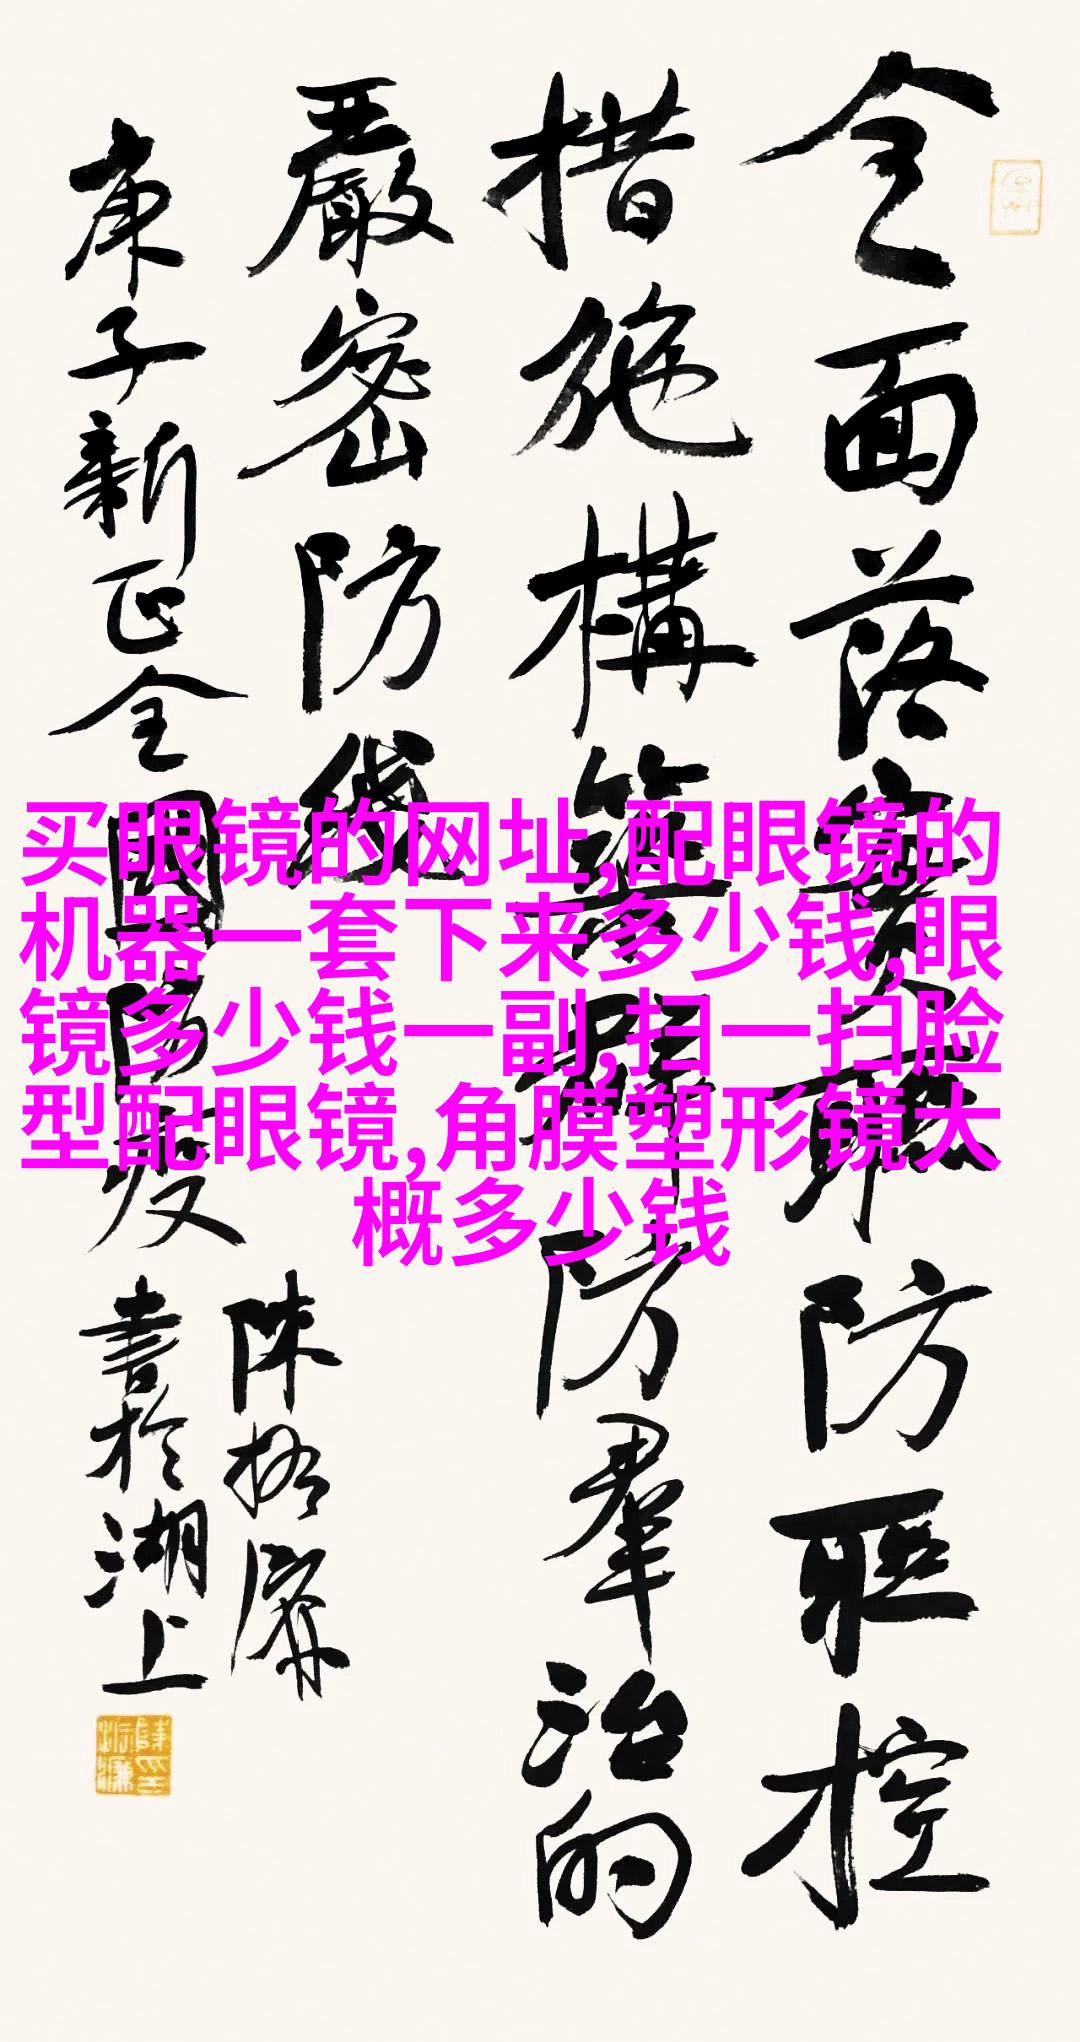 全面落实联防联控
措施構筑群防羣治的
嚴密防线
庚子新正全国防疫
陳
書於湖上
买眼镜的网址,配眼镜的
机器一套下来多少钱,眼
镜多少钱一副,扫一扫脸
型配眼镜,角膜塑形镜大
概多少钱